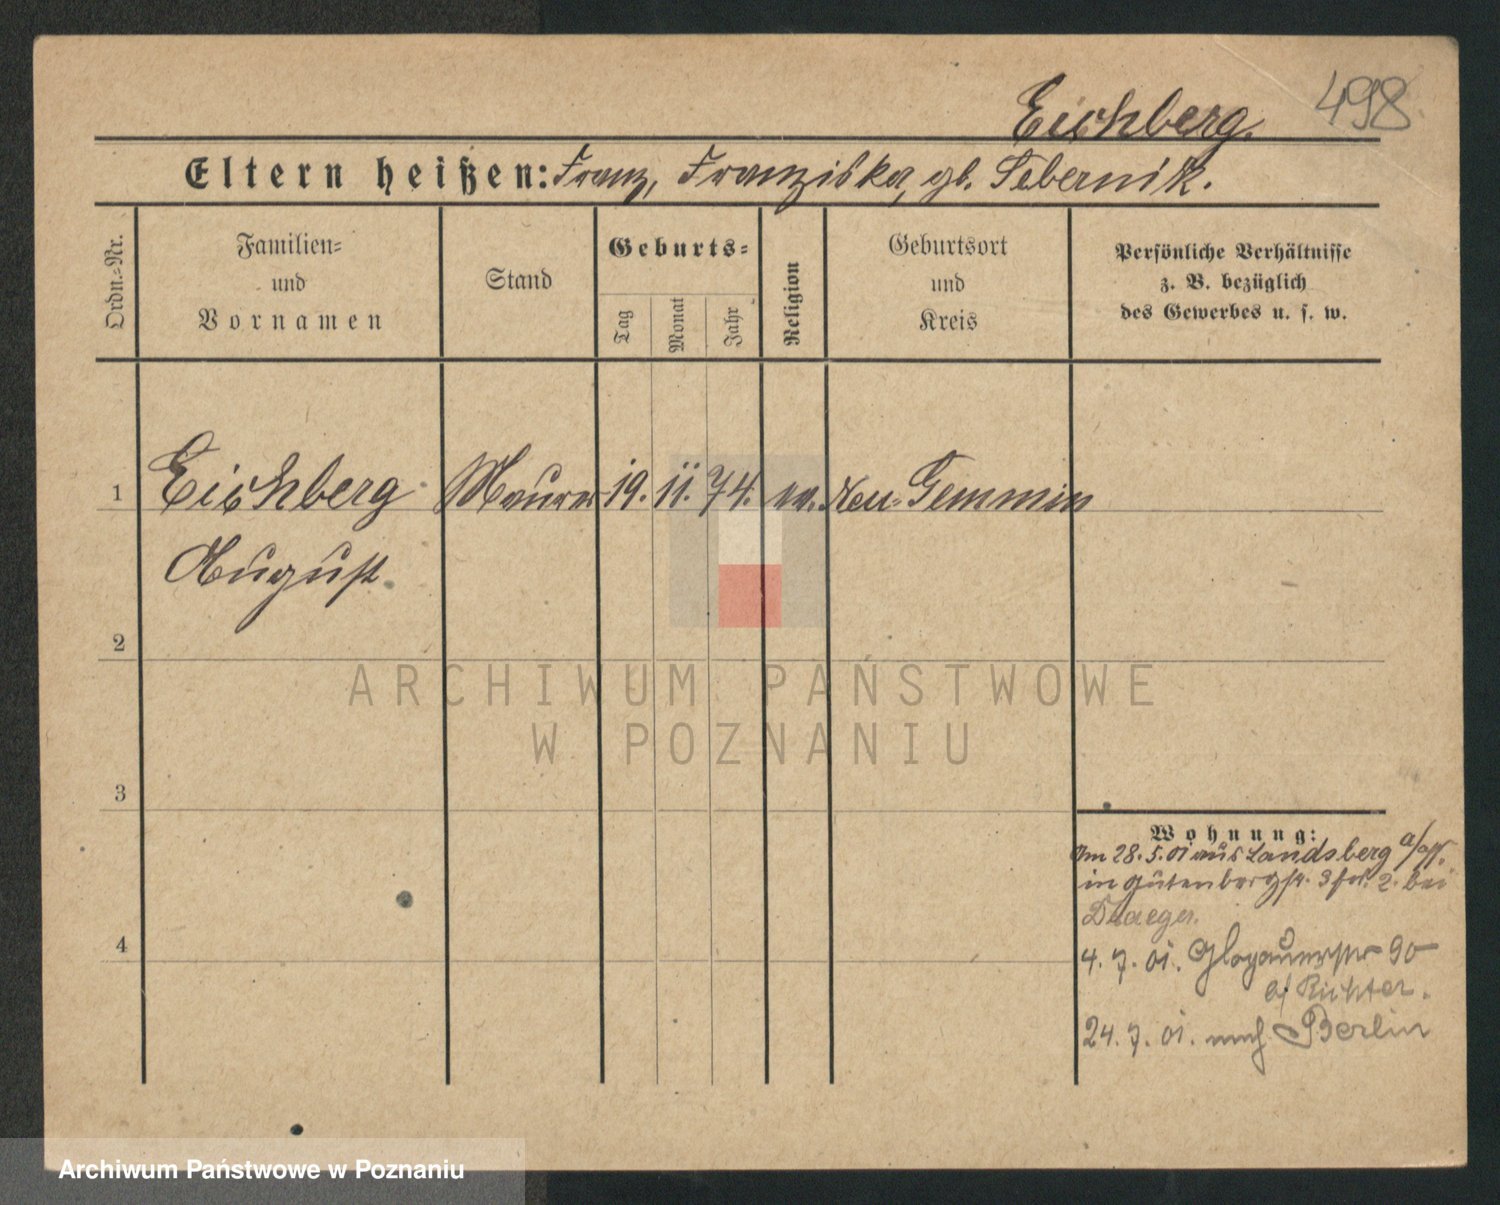 Eichberg. 498
Eltern heißen: Franz, Franziska, gb. Sebernik.
Ordn.=Nr.
Familien=
und
Vornamen
Stand
Geburts=
Tag
Monat
Jahr
Religion
Geburtsort
und
Kreis
Persönliche Verhältnisse
z. B. bezüglich
des Gewerbes u. s. w.
1 Eichberg Maurer 19. 11. 74. ev. Neu-Gemmin
August
2
3
4
Wohnung:
Am 28.5.01 aus Landsberg a/W.
in Gutenbergstr. 3 2. bei
Draeger.
4.7.01. Glogauerstr 90
b/ Richter.
24.7.01. nach Berlin
ARCHIWUM PAŃSTWOWE
W POZNANIU
Archiwum Państwowe w Poznaniu